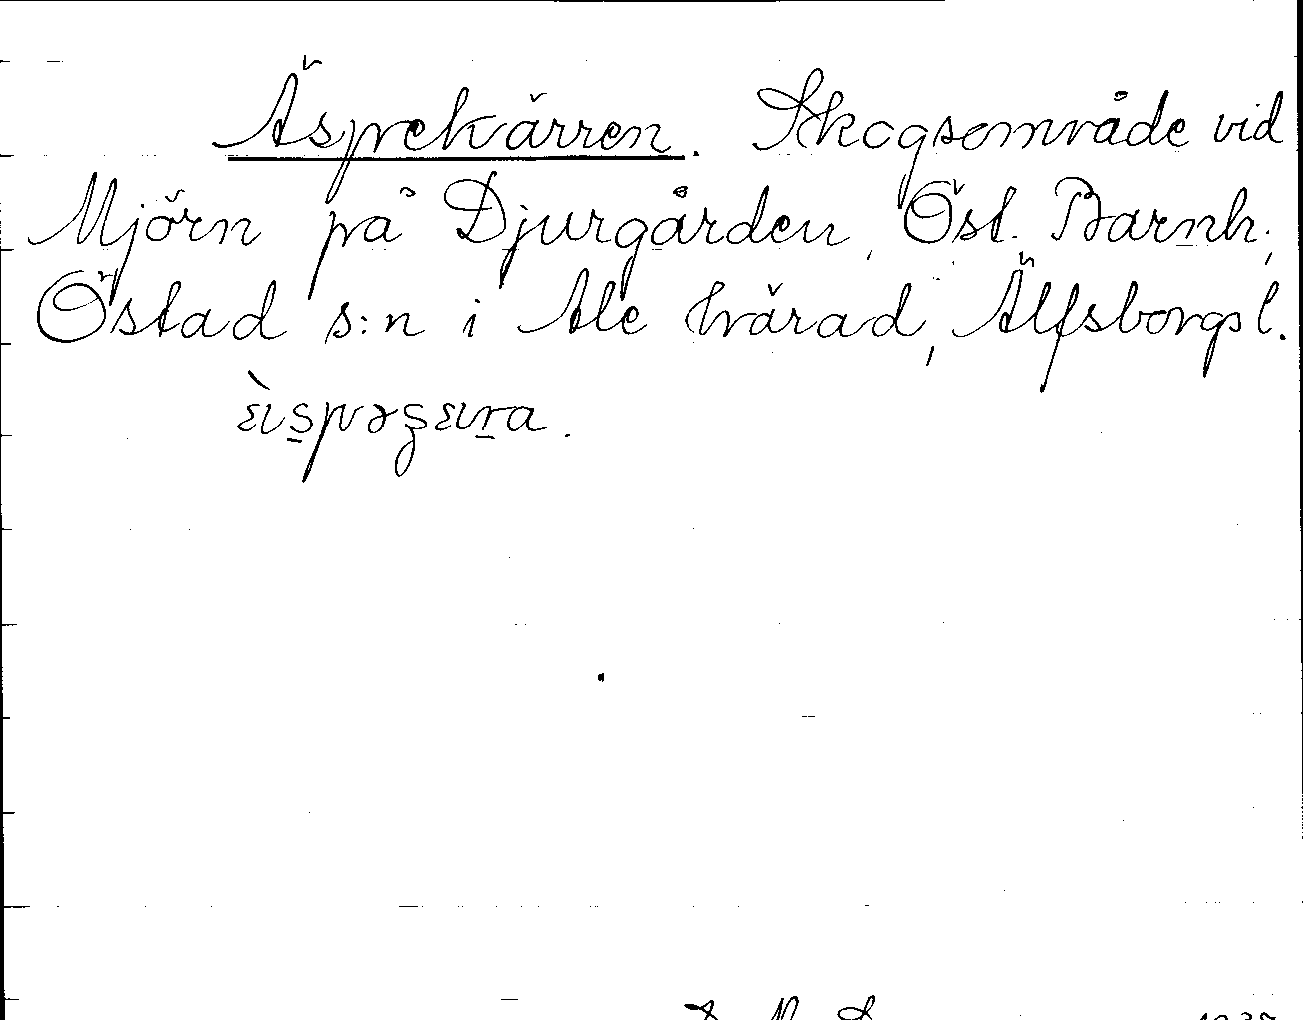 Äspekärren. Skogsområde vid
Mjörn på Djurgården, Öst. Barnh.,
Östad s:n i Ale härad, Älfsborgs l.